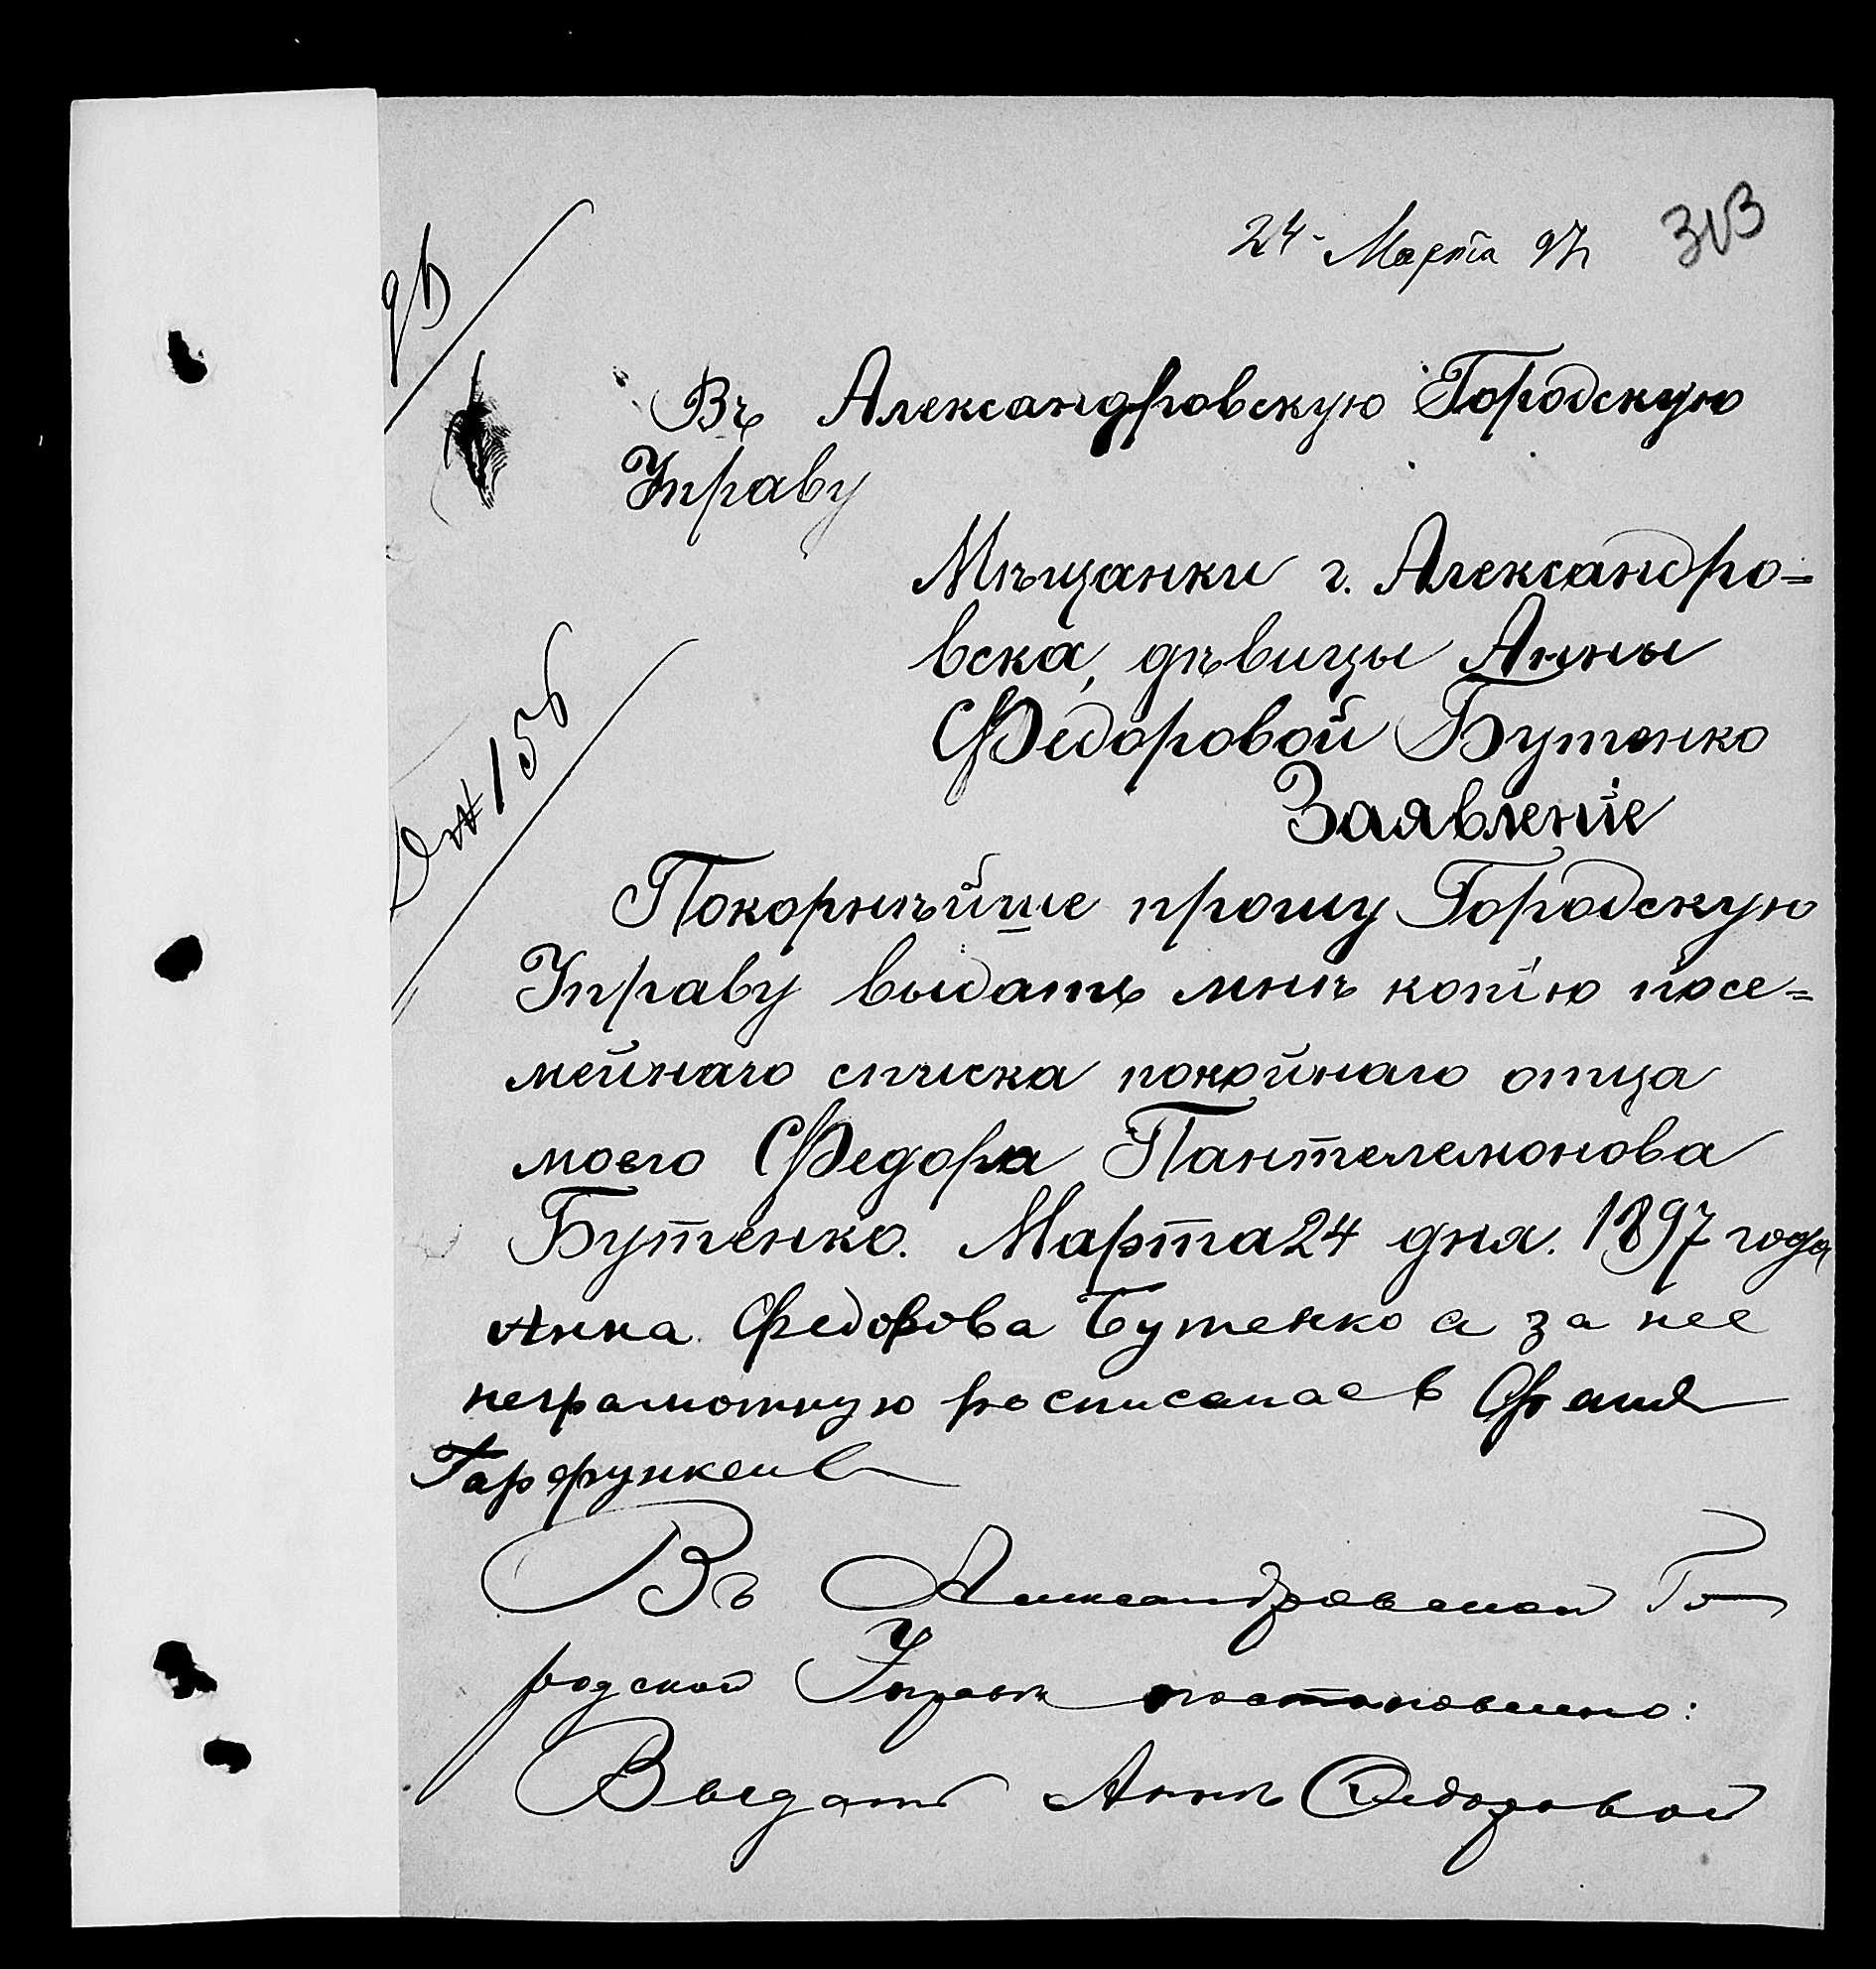 24 Марта 97 313
Въ Александровскую Городскую
Управу
Мѣщанки г. Александро=
вска, дѣвицы Анны
Федоровой Бутенко
Заявленіе
№ 156
Покорнѣйше прошу Городскую
Управу выдать мнѣ копію посе=
мейнаго списка покойнаго отца
моего Федора Пантелемонова
Бутенко. Марта 24 дня. 1897 года
Анна Федорова Бутенко а за нее
неграмотную росписалась
Въ Александровской Го
родской Управѣ постановлено:
Выдать Аннѣ Федоровой